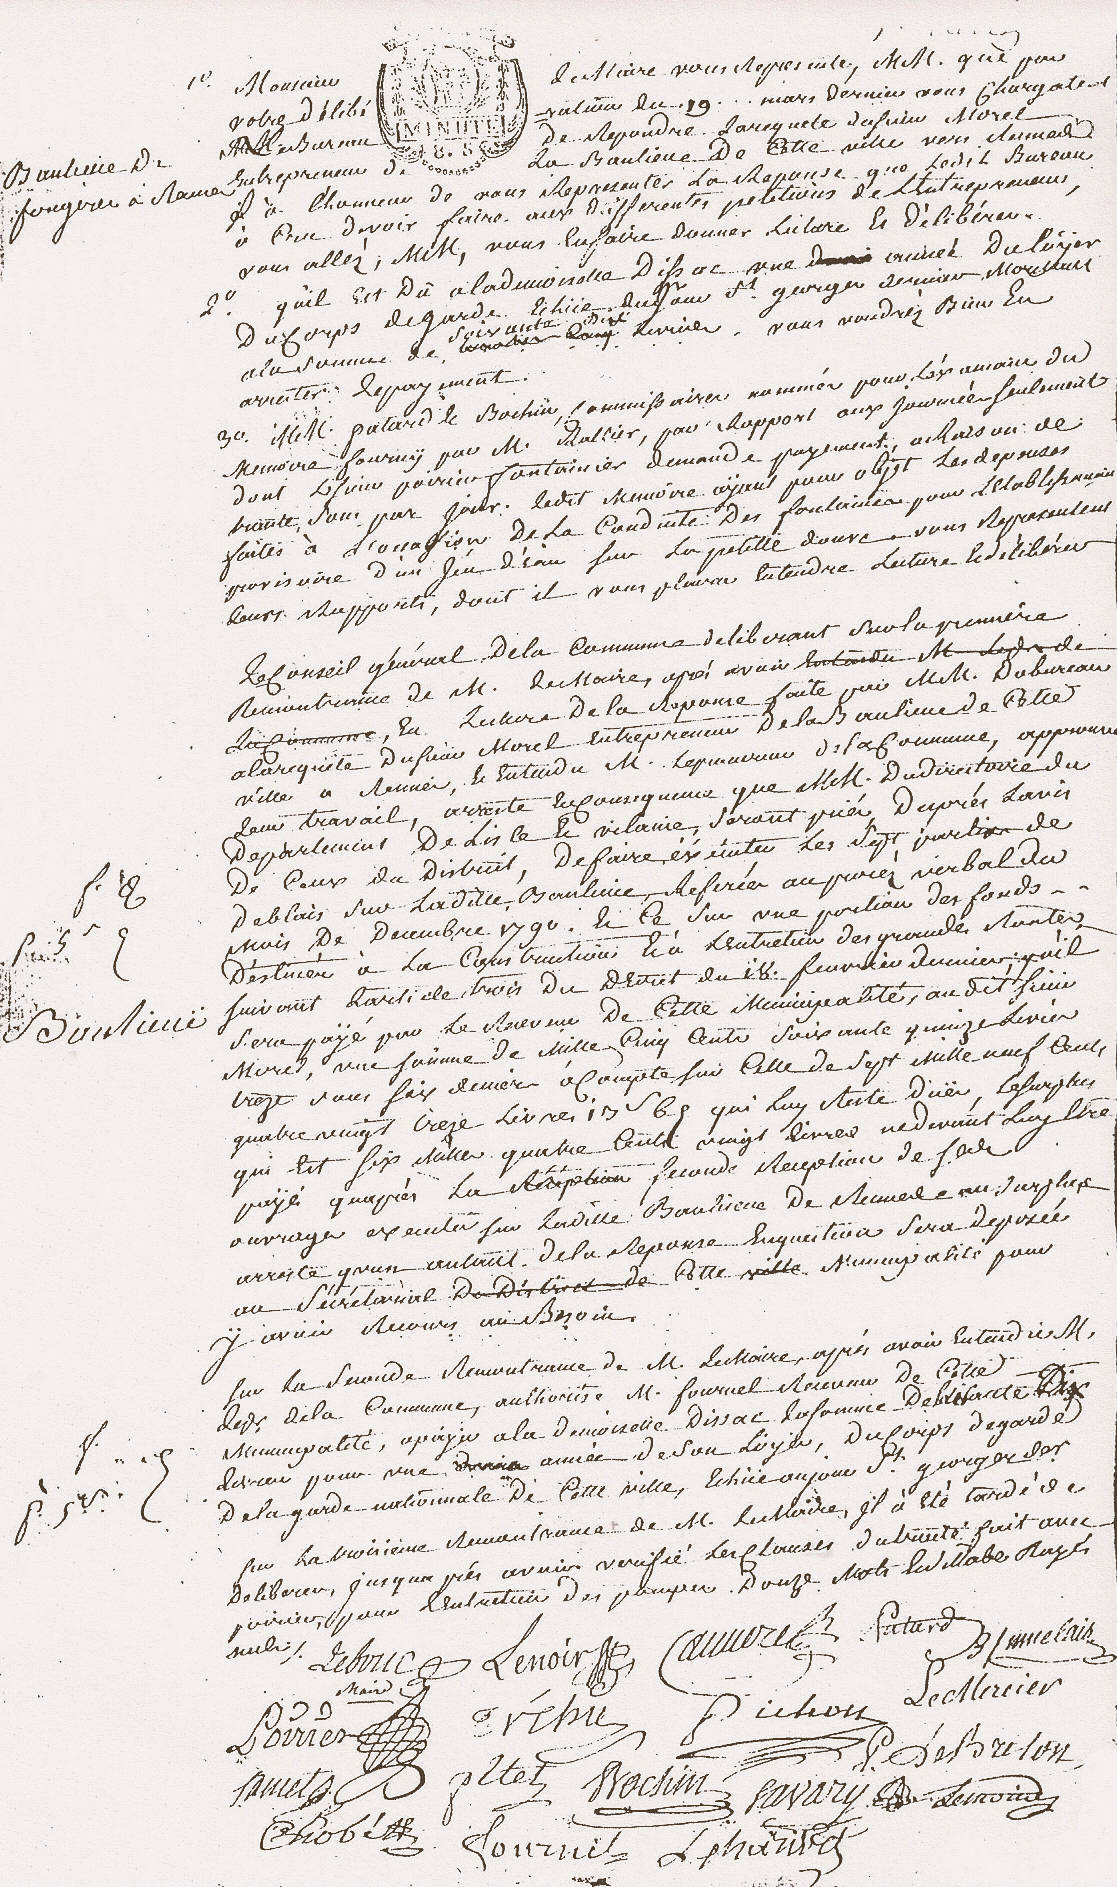 1º. Monsieur Le Maire vous Represente, M.M. que par
votre délibé ration du 19... mars dernier vous Chargates
MINUTE
Le Bureau De Repondre Larequete dusieur Morel
Entrepreneur de La Banlieue De Cette ville vers Rennes
Banlieue De
fougères à Rennes
Il à l'honneur de vous Representer La Reponse que Ledit Bureau
à Cru devoir faire aux differentes petitions de L'Entrepreneur,
vous allez, M.M, vous Enfaire donner Lecture Et délibérer.
2º. qu'il Est Dû alademoiselle Dissac une année Du Loyer
Du Corps degarde Echüe du jour St. georges dernier Montant
ala Somme de Soixante Dix Livres. vous voudréz Bien En
arreter Lepayement.
3º. M.M. patard & Bochin, Commissaires nommés pour L'éxamen du
Memoire fourny par M. Rallier, par Rapport aux journées Seulement
dont Le Sieur poirier fontainier demande payement, a Raison de
trente Sous par jour. Ledit Memoire ayant pour objet Les depenses
faites à l'occasion De La Conduite Des fontaines pour L'Etablissement
provisoire d'un jeu d'eau sur La petitte douve. vous Representent
Leurs Rapports, dont il vous plaira Entendre Lecture Et délibérer
Le Conseil général De la Commune deliberant Sur la premiére
Remontrance de M. Le Maire, aprés avoir Entendu M. Le pr de
La Commune, Eu Lecture De la Reponse faite par M.M. Du bureau
alarequete Dusieur Morel Entrepreneur De la Banlieue de Cette
ville a Rennes, Et Entendu M. Leprocureur De la Commune, approuve
Leur travail, arreste En Consequence que M.M. Du directoire du
Departement De Lisle Et vilaine, Seront priés, Duprés Lavis
De Ceux du District, De faire éxécuter Les Sept parties de
Deblais Sur Laditte Banlieue, Referées au procéz verbal du
mois De Decembre 1790. Et Ce Sur une portion des fonds - -
Destinés à La Construction Et à L'Entretien des grandes Routes,
Suivant L'article trois Du Decret du 18. fevrier dernier; qu'il
Banlieue
Sera payé par Le Receveur De Cette Municipalité, au dit Sieur
Morel, une Somme de Mille Cinq Cents Soixante quinze Livres
treze sous Six deniers à Compte Sur Celle de Sept Mille neuf Cents
quatre vingt treze Livres 13 s 6 d qui Luy Reste Düe, Lesurplus
qui Est Six Mille quatre Cents vingt Livres nedevant Luy Etre
payé quaprés La Réception Seconde Reception de Ses
ouvrages executés Sur Laditte Banlieue De Rennes au Surplus
arreste quun autant De la Reponse Enquestion Sera deposée
au Sécrétariat Du District de Cette ville Municipalité pour
y avoir Recours au Besoin.
Sur La Seconde Remontrance de M. Le Maire, aprés avoir Entendu M.
Le pr. dela Commune, authorise M. fournel Receveur De Cette
Municipalité, apayer ala demoiselle Dissac Lasomme De Soixante Dix
Livres pour une année De Son Loyer, Du Corps degarde
De la garde nationnale De Cette ville, Echüe aujour St. georges der
Sur La troisieme Remontrance de M. Le Maire, Il à Eté tardé de
Deliberer, jusqua prés avoir verifié Les Clauses du traité fait avec
poirier, pour L'Entretien des pompes. Douze Mots Et Sillabe Rayés
nuls ./.
Lebouc
Maire
Lenoir
Patard
Poirier
Tréhu
Pichon
LeMercier
P. LeBreton
Bochin
Savary
Lemoine
Chobé
Fournel